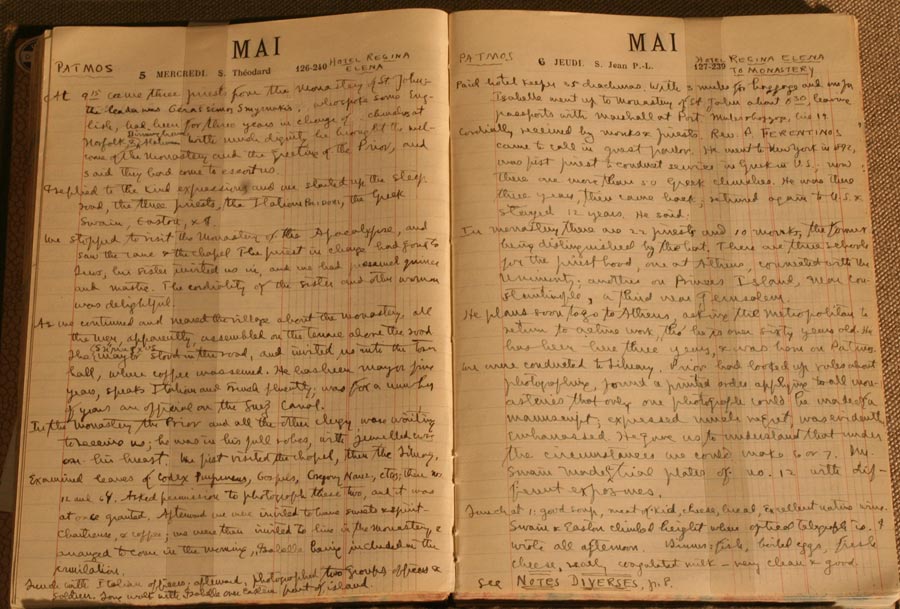 MAI
PATMOS
5 MERCREDI. S. Théodard 126-240
HOTEL REGINA
ELENA
At 9 15 came three priests from the Monastery of St John;
the leader was Gerasimos Smyrnakis, who spoke some Eng-
lish, had been for three years in charge of churches at
Norfolk & Birmingham, Alabama. With much dignity he brought the wel-
come of the Monastery and the greeting of the Prior, and
said they had come to escort us.
I replied to the kind expressions, and we started up the steep
road, the three priests, the Italian the Greek
Swain, Easton, & I.
We stopped to visit the Monastery of the Apocalypse, and
saw the cave & the chapel. The priest in charge had gone to
his sister invited us in, and we had quince
and mastic. The cordiality of the sister and other woman
was delightful.
As we continued and neared the village about the monastery, all
the men, apparently, assembled on the terrace above the road.
The mayor stood in the road, and invited us into the town
hall, where coffee was served. He has been mayor five
years, speaks Italian and French fluently; was for a number
of years an official on the Suez Canal.
In the monastery the Prior and all the other clergy were waiting
to receive us; he was in his full robes, with jewelled cross
on his breast. We first visited the chapel, then the library,
Examined leaves of Codex Purpureus, Gospels, Gregory Naz., etc; then no.
12 and 64. Asked permission to photograph these two, and it was
at once granted. Afterward we were invited to have sweets & spirit
Chartreuse, & coffee; we were then invited to live in the Monastery, &
arranged to come in the morning, Isabella being included in the
invitation.
Lunch with Italian officers; afterward, photographed two groups officers &
soldiers. Long walk with Isabella over eastern part of island.
MAI
PATMOS
6 JEUDI. S. Jean P.-L. 127-239
HOTEL REGINA ELENA
TO MONASTERY
Paid hotel keeper 35 drachmas. With 3 mules for baggage and
Isabella went up to Monastery of St John about 8 30, leaving
passports with Marshall at Port.
Cordially received by monks & priests. Rev. A. FERENTINOS
came to call in guest parlor. He went to New York in 1892,
was first priest to conduct service in Greek in U.S.; now
there are more than 50 Greek churches. He was there
three years, then came back; returned again to U.S. &
stayed 12 years. He said:
In monastery there are 22 priests and 10 monks, the former
being distinguished by the hat. There are three schools
for the priesthood, one at Athens, connected with the
University; another on Princes Island, near Con-
stantinople, a third near Jerusalem.
He plans soon to go to Athens, asking the Metropolitan to
return to active work, tho he is over sixty years old. He
has been here three years, & was born on Patmos.
We were conducted to library. Prior had looked up rules about
photographing, found a printed order applying to all mon-
asteries that only one photograph could be made of a
manuscript; expressed much regret, was evidently
embarrassed. He gave us to understand that under
the circumstances we could make 6 or 7. Mr.
Swain made trial plates of no. 12 with dif-
ferent exposures.
Lunch at 1: good soup, meat of kid, cheese, bread, excellent native wine.
Swain & Easton climbed height where optical telegraph is. I
wrote all afternoon. Dinner: fish, boiled eggs, fresh
cheese, really coagulated milk – very clean & good.
See NOTES DIVERSES, p. P.